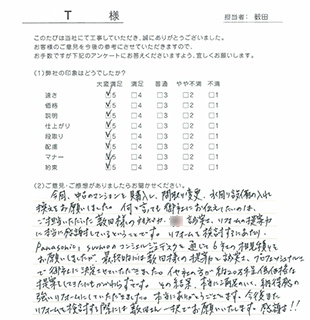 T 様
担当者: 藪田
このたびは当社にて工事していただき、誠にありがとうございました。
お客様のご意見を今後の参考にさせていただきますので、
お手数ですが下記のアンケートにお答えくださいますよう、宜しくお願いします。
(1)弊社の印象はどうでしたか?
大変満足 満足 普通 やや不満 不満
速さ 5 4 3 2 1
価格 5 4 3 2 1
説明 5 4 3 2 1
仕上がり 5 4 3 2 1
段取り 5 4 3 2 1
配慮 5 4 3 2 1
マナー 5 4 3 2 1
約束 5 4 3 2 1
(2)ご意見・ご感想がありましたらお聞かせください。
今回、中古のマンションを購入し、間取り変更、水回り設備の入れ
替えをお願いしました。何と言っても御社にお伝えしたいのは、
ご担当いただいた数田様の
本当に感謝しているということです。リフォームを検討するにあたり、
Panasonic, suumoのコンシェルジュデスクを通じて6社の相見積りを
お願いしましたが、最終的には数田様の提案力と誠実さ、プロフェッショナルさ
で御社に決定させていただきました。
提案をして その結果、本当に満足のいく、納得感の
強いリフォームをしていただきました。本当にありがとうございます。今後また
リフォームを検討する際には数田様に一択でお願いいたします。感謝!!